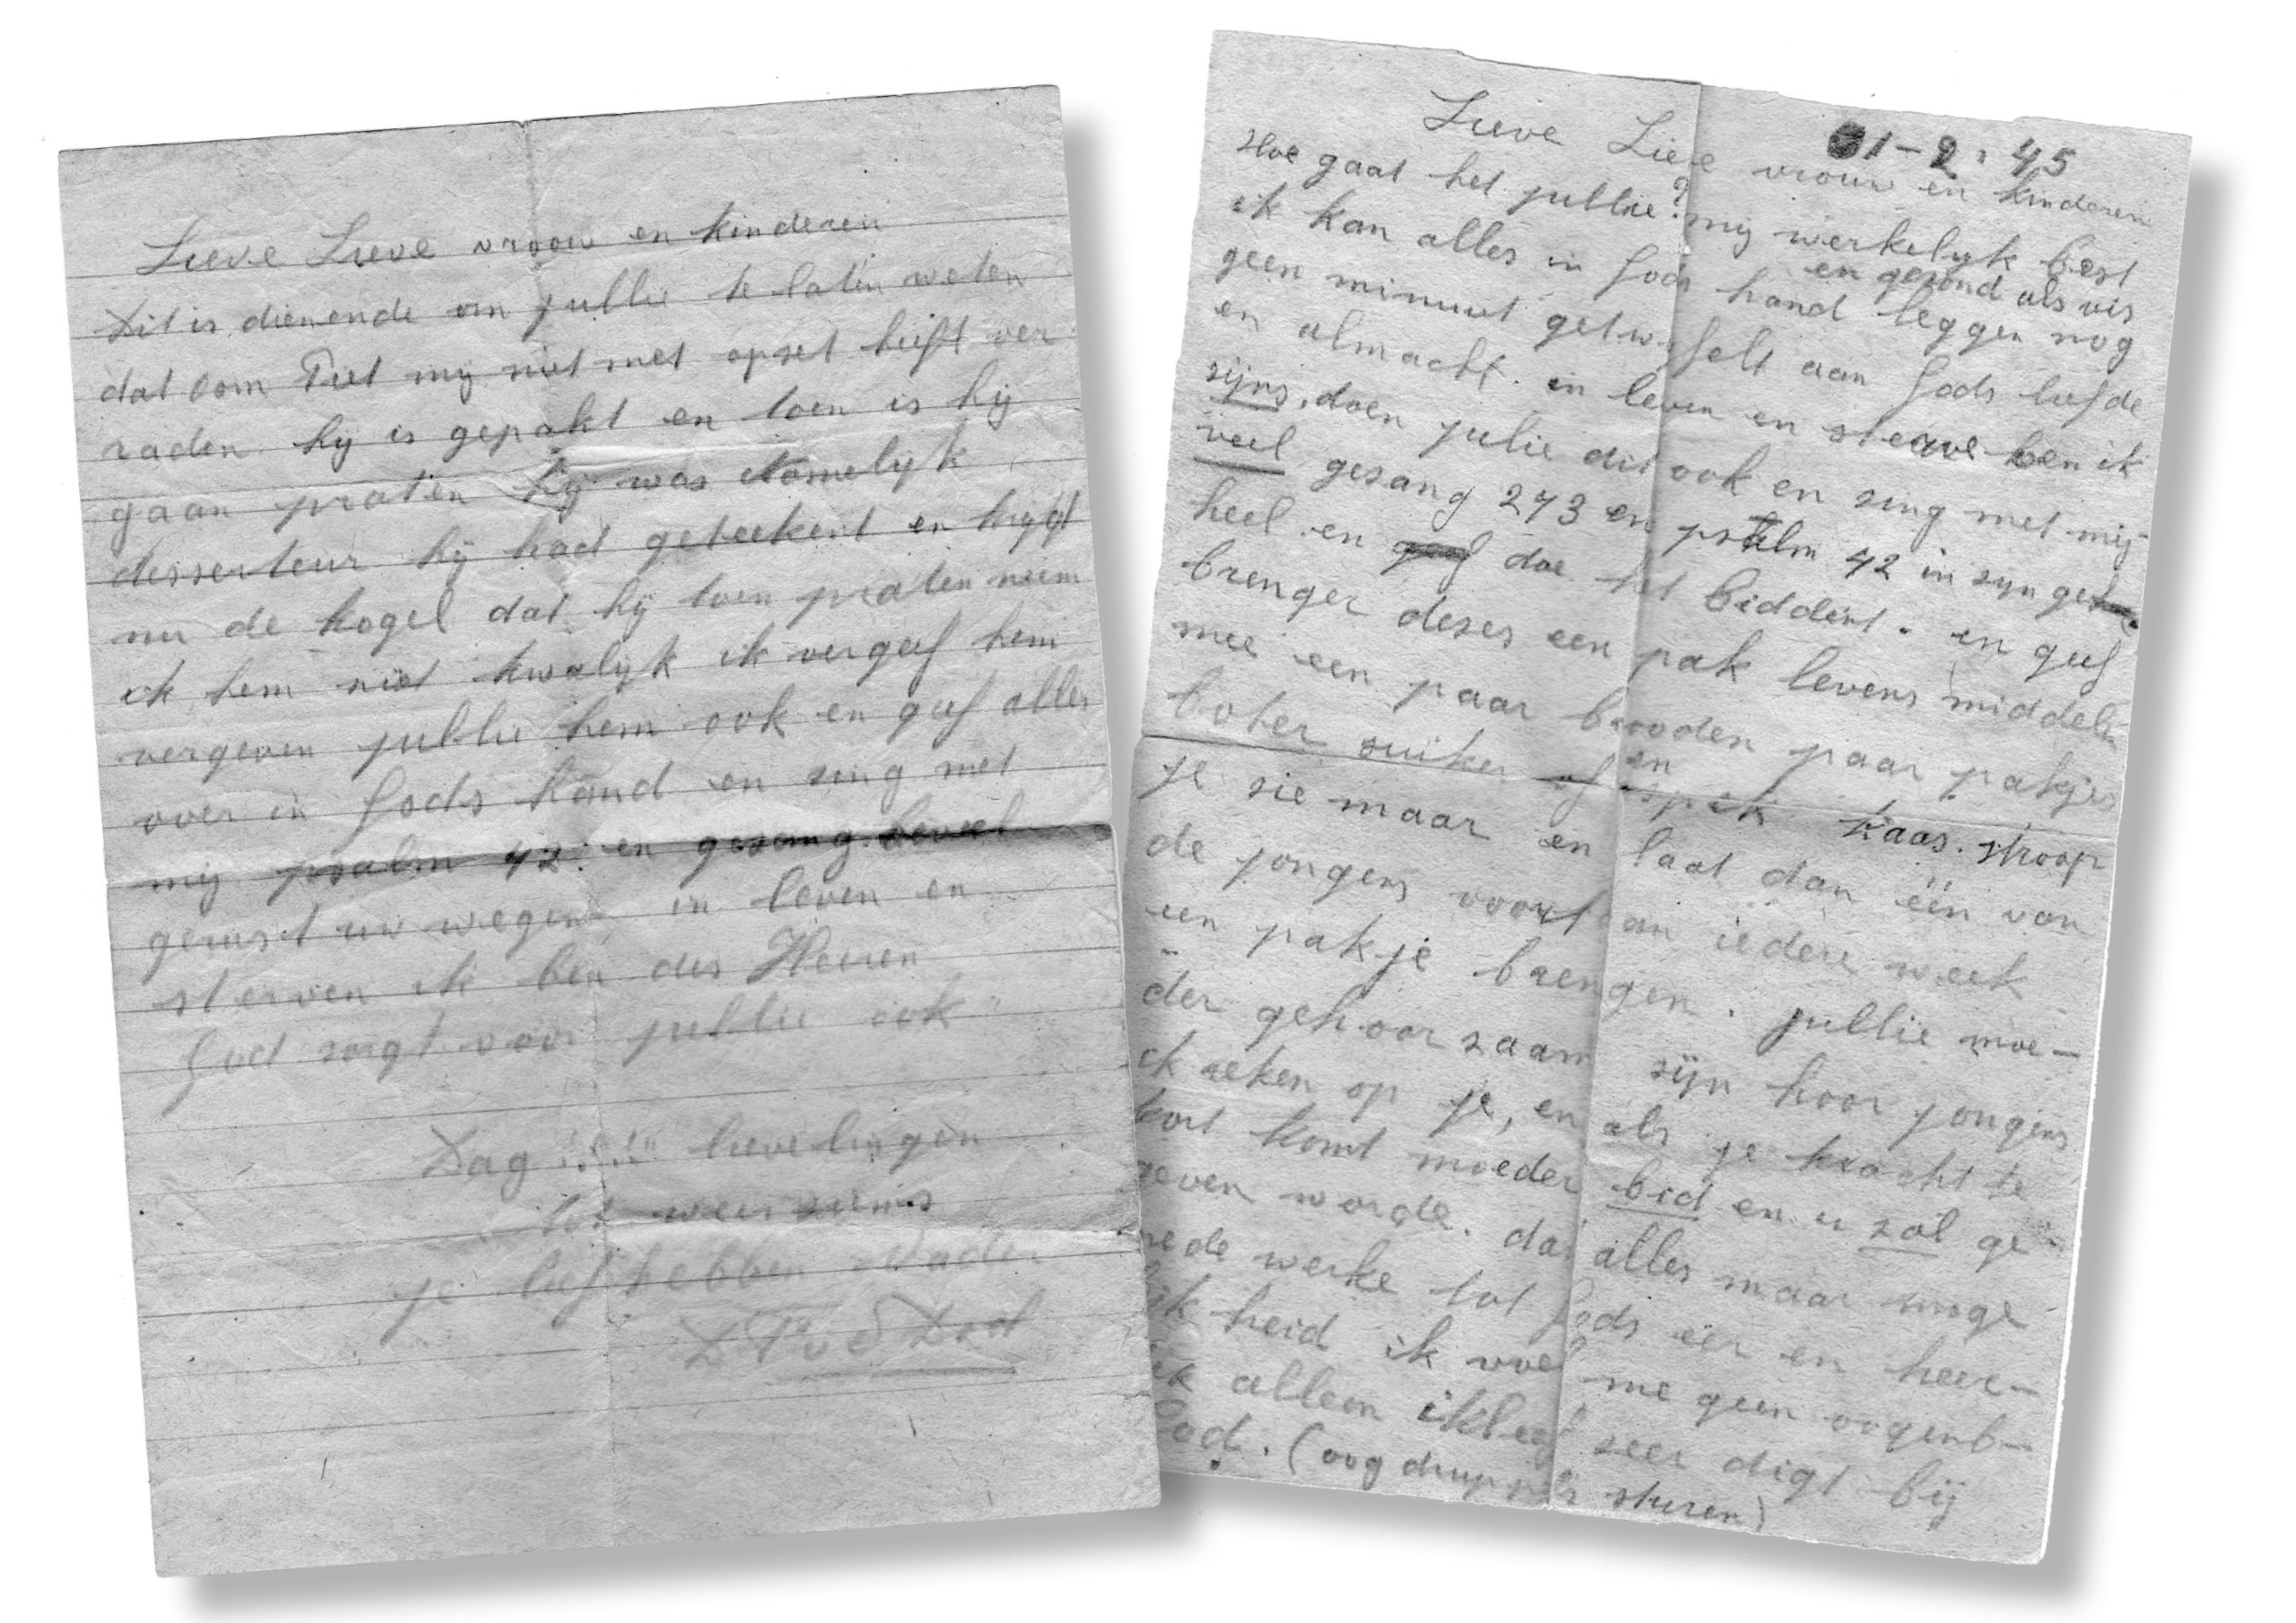 Lieve Lieve vrouw en kinderen
Dit is dienende om jullie te laten weten
dat oom Piet mij niet met opset heeft ver
raden hij is gepakt en toen is hij
gaan praten hij was namelijk
desserteur hij had geteekent en krijgt
nu de kogel dat hij toen praten neem
ik hem niet kwalijk ik vergeef hem
vergeven jullie hem ook en geef alles
over in Gods hand en zing met
mij psalm 42 en gezang beveel
gerust uw wegen in leven en
sterven ik ben des Heeren
God zorgt voor jullie ook
Dag !!!! lievelingen
tot weerziens
je liefhebben Vader
01-2-45
Lieve Lieve vrouw en kinderen
Hoe gaat het jullie? mij werkelijk best
en gezond als vis
ik kan alles in Gods hand leggen nog
geen minuut getwijfelt aan Gods liefde
en almacht. in leven en sterve ben ik
zijns, doen julie dit ook en zing met mij
veel gezang 273 en psalm 42 in zijn geheel
en doe het biddent. en geef
brenger dezes een pak levensmiddelen
mee een paar brooden paar pakjes
boter suiker of en spek kaas. stroop
je zie maar en laat dan één van
de jongens voortaan iedere week
een pakje brengen. jullie moe-
der gehoorzaam zijn hoor jongens
ik reken op je, en als je kracht te
kort komt moeder bid en u zal ge-
geven worde. dat alles maar moge
mede werke tot Gods eer en heer-
lijkheid ik voel me geen oogenb-
lik alleen ik leef zeer digt bij
God. (oogdruppels sturen)